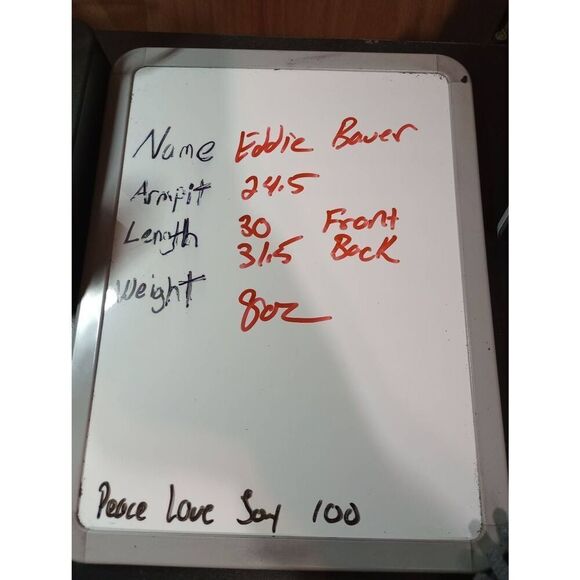 Name Eddie Bauer
Armpit 24.5
Length 30 Front
31.5 Back
Weight 8oz
Peace Love Joy 100